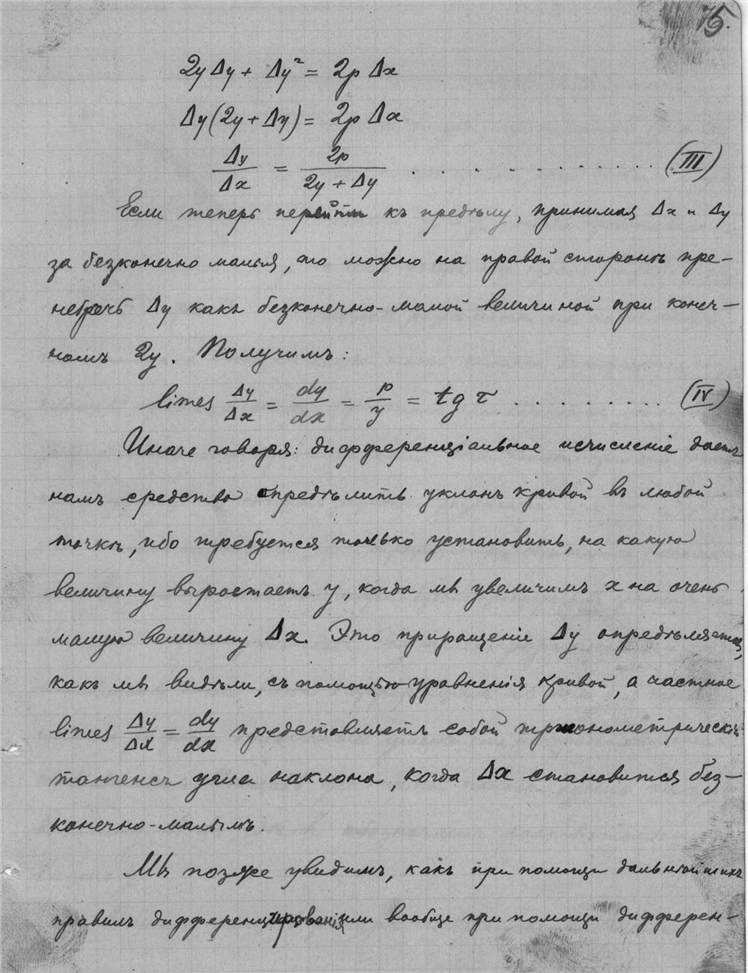 75.
2yΔy + Δy² = 2p Δx
Δy(2y + Δy) = 2p Δx
Δy/Δx = 2p/(2y + Δy) . . . . . . . . . . . . . . (III)
Если теперь перейти къ предѣлу, принимая Δx и Δy
за безконечно малыя, то можно на правой сторонѣ пре-
небречь Δy какъ безконечно-малой величиной при конеч-
номъ 2y. Получимъ:
limes Δy/Δx = dy/dx = p/y = tg τ . . . . . . . . . (IV)
Иначе говоря: дифференціальное исчисленіе даетъ
намъ средство опредѣлить уклонъ кривой въ любой
точкѣ, ибо требуется только установить, на какую
величину выростаетъ y, когда мы увеличимъ x на очень
малую величину Δx. Это приращеніе Δy опредѣляется,
какъ мы видѣли, съ помощью уравненія кривой, а частное
limes Δy/Δx = dy/dx представляетъ собой тригонометрическій
тангенсъ угла наклона, когда Δx становится без-
конечно-малымъ.
Мы позже увидимъ, какъ при помощи дальнѣйшихъ
правилъ дифференцированія или вообще при помощи дифферен-